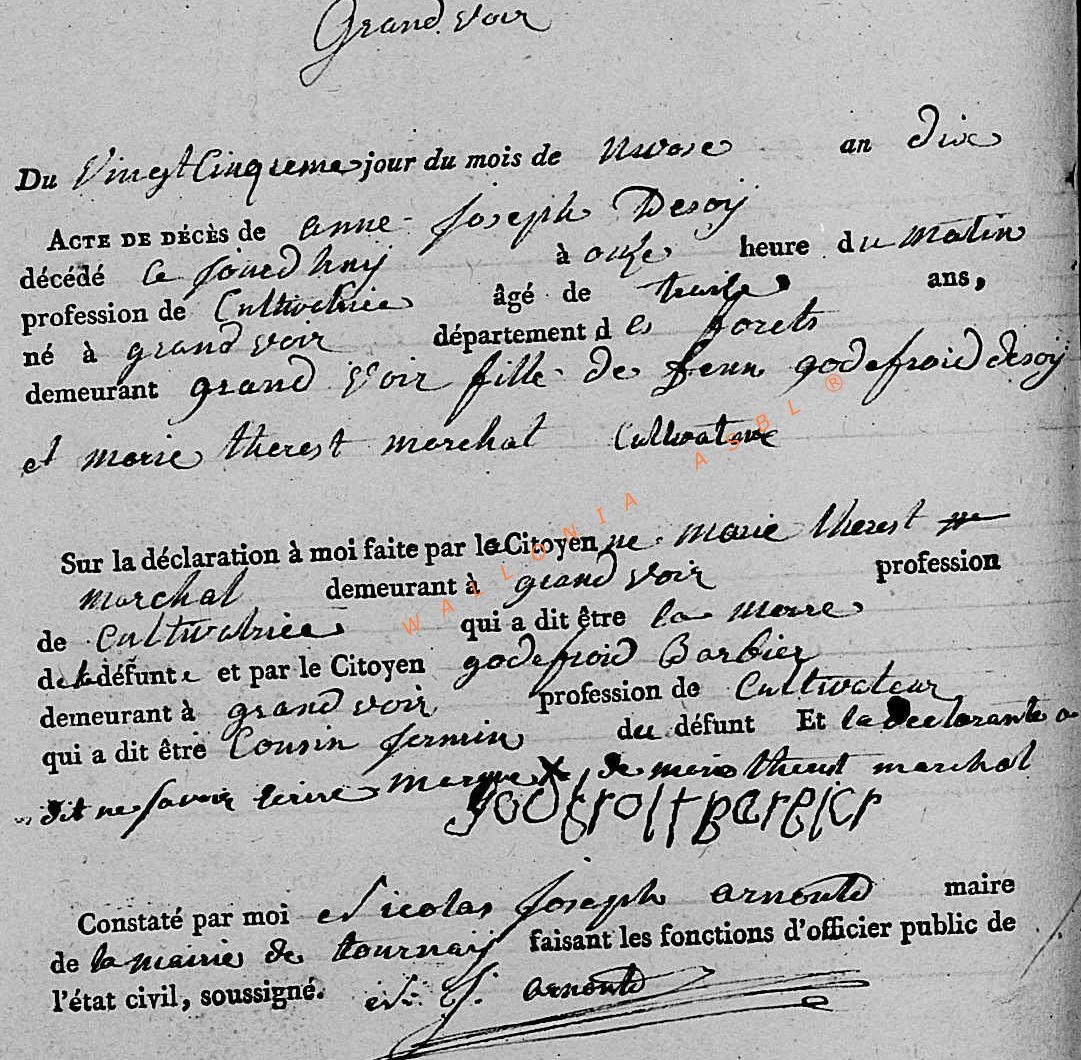 Grand voir
Du Vingt Cinquieme jour du mois de Nivose an dix
ACTE DE DÉCÈS de anne Joseph Desoij
décédé ce jourd huij à onze heure du matin
profession de Cultivatrice âgé de trente ans,
né à grand voir département des forets
demeurant grand voir fille de Jean godefroid desoij
et marie therest marchal Cultivateur
Sur la déclaration à moi faite par la Citoyenne marie therest
marchal demeurant à grand voir profession
de Cultivatrice qui a dit être la merre
de la défunte et par le Citoyen godefroid Barbier
demeurant à grand voir profession de Cultivateur
qui a dit être Cousin germin du défunt Et la Declarante a
dit ne savoir Ecrire marque X de marie therest marchal
godfroit parbier
Constaté par moi Nicolas Joseph arnould maire
de la mairie de tournaij faisant les fonctions d'officier public de
l'état civil, soussigné. N. J. arnould
WALLONIA ASBL ®